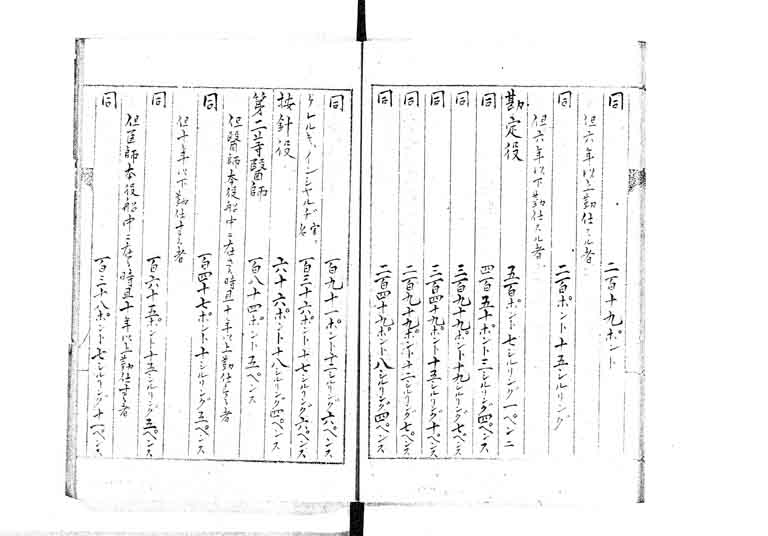 同 二百十九ポント
但六年以上勤仕スル者
同 二百ポント十五シルリング
但六年以下勤仕スル者
勘定役 五百ポント七シルリング一ペンニ
同 四百五十ポント三シルリング四ペンス
同 三百九十九ポント十九シルリング七ペンス
同 三百四十九ポント十五シルリング十ペンス
同 二百九十九ポント十二シルリング七ペンス
同 二百四十九ポント八シルリング四ペンス
同 百九十一ポント十二シルリング六ペンス
百三十六ポント十七シルリング六ペンス
按針役 六十六ポント十八シルリング四ペンス
第二等醫師 百八十四ポント五ペンス
但醫師本役船中ニ在ラサル時且十年以上勤仕スル者
同 百四十七ポント十シルリング三ペンス
但十年以下勤仕スル者
同 百六十五ポント十五シルリング三ペンス
但医師本役船中ニ在ル時且十年以上勤仕スル者
同 百三十八ポント七シルリング十一ペンス